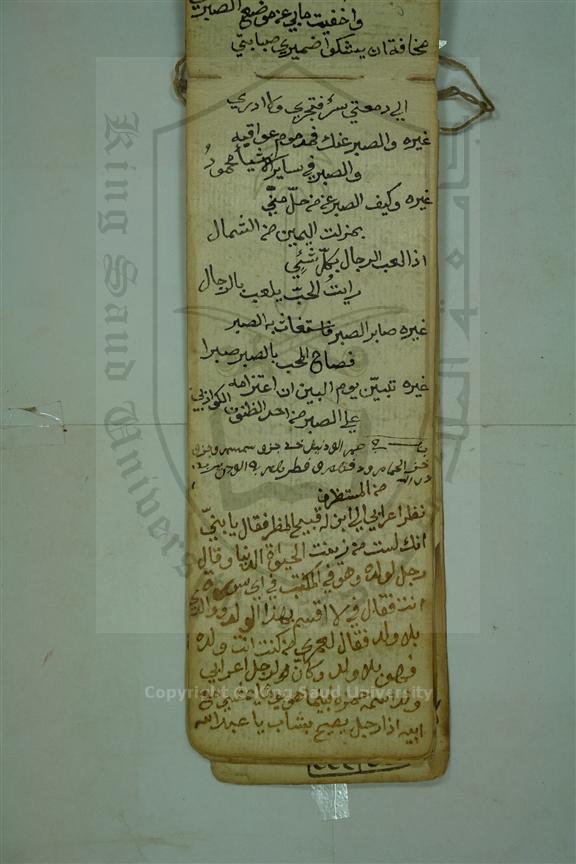 واخفيت مابي عن موضع الصبر
مخافة ان يشكوا ضميري صبابتي
الى دمعتي سرا فتجري ولا ادري
غيره والصبر عنك فمذموم عواقبه
والصبر في ساير الاشياء محمود
غيره وكيف الصبر عن من حل مني
بمنزلت اليمين من الشمال
اذا لعب الرجال بكل شئي
رايت الحب يلعب بالرجال
غيره صابر الصبر فاستغاث به الصبر
فصاح المحب بالصبر صبرا
غيره تبين يوم البين ان اعتزامه
على الصبر من احد الظنون الكواذب
من المستظرف
نظر اعرابي الى ابن له قبيح المنظر فقال يا بني
انك لست من زينت الحيوة الدنيا وقال
رجل لولده وهو في المكتب في اي سورة
انت فقال في لا اقسم بهذا البلد ووالدي
بلا ولد فقال لعمري من كنت انت ولده
فهو بلا ولد وكان لرجل اعرابي
ولد اسمه حمزه بينما هو يمشي مع
ابيه اذا رجل يصيح بشاب يا عبد الله
Copyright © King Saud University
King Saud University